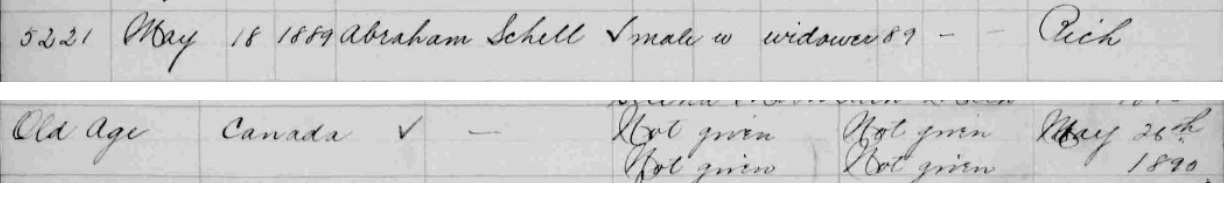 5221 May 18 1889 Abraham Schell ✓ male w widower 89 - - Rich
Old Age Canada ✓ — Not given Not given May 26th
Not given Not given 1890.